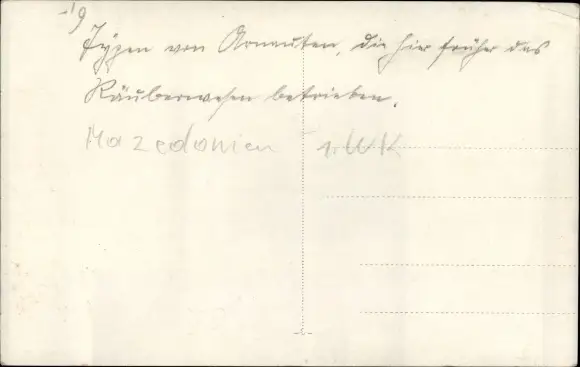 Typen von Arnauten, die hier früher das
Räuberwesen betrieben.
Mazedonien 1. WK.